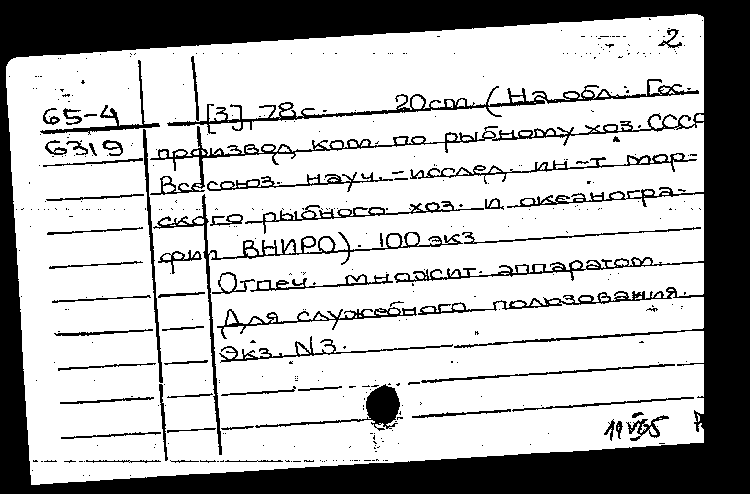 2
65-4 [3], 78с. 20cm. (На обл.: Гос.
6319 производ. ком. по рыбному хоз. СССР
Всесоюз. науч.-исслед. ин-т мор-
ского рыбного хоз. и океаногра-
фии ВНИРО). 100 экз
Отпеч. множит. аппаратом.
Для служебного пользования.
Экз. N3.
19 VI 65